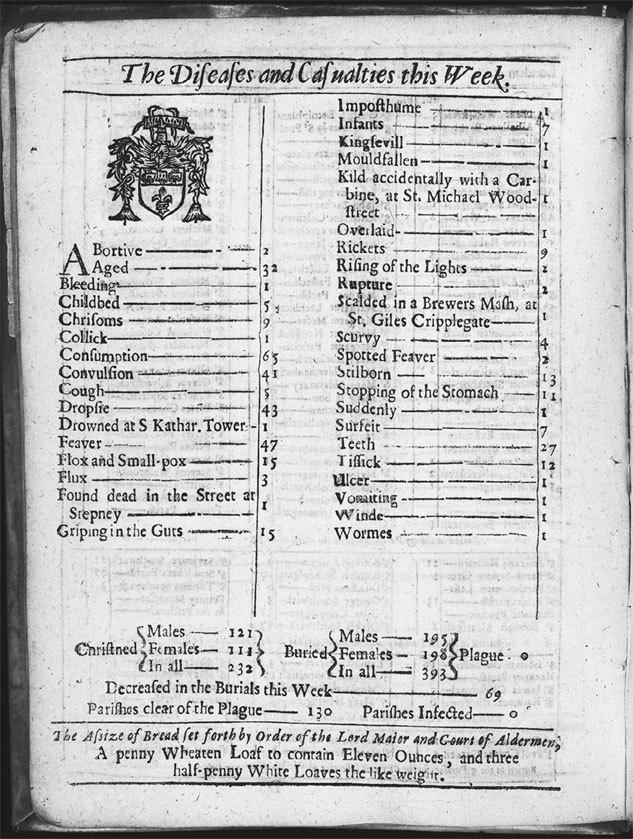 The Diſeaſes and Caſualties this Week.
Abortive 2
Aged 32
Bleeding 1
Childbed 5
Chriſoms 9
Collick 1
Conſumption 65
Convulſion 41
Cough 5
Dropſie 43
Drowned at S Kathar. Tower 1
Feaver 47
Flox and Small-pox 15
Flux 3
Found dead in the Street at
Stepney 1
Griping in the Guts 15
Impoſthume 1
Infants 7
Kingſevill 1
Mouldfallen 1
Kild accidentally with a Car-
bine, at St. Michael Wood-
ſtreet 1
Overlaid 1
Rickets 9
Riſing of the Lights 2
Rupture 2
Scalded in a Brewers Maſh, at
St. Giles Cripplegate 1
Scurvy 4
Spotted Feaver 2
Stilborn 13
Stopping of the Stomach 11
Suddenly 1
Surfeit 7
Teeth 27
Tiſſick 12
Ulcer 1
Vomiting 1
Winde 1
Wormes 1
Chriſtned Males 121 Females 111 In all 232 Buried Males 195 Females 198 In all 393 Plague 0
Decreaſed in the Burials this Week 69
Pariſhes clear of the Plague 130 Pariſhes Infected 0
The Aſſize of Bread ſet forth by Order of the Lord Maior and Court of Aldermen,
A penny Wheaten Loaf to contain Eleven Ounces, and three
half-penny White Loaves the like weight.